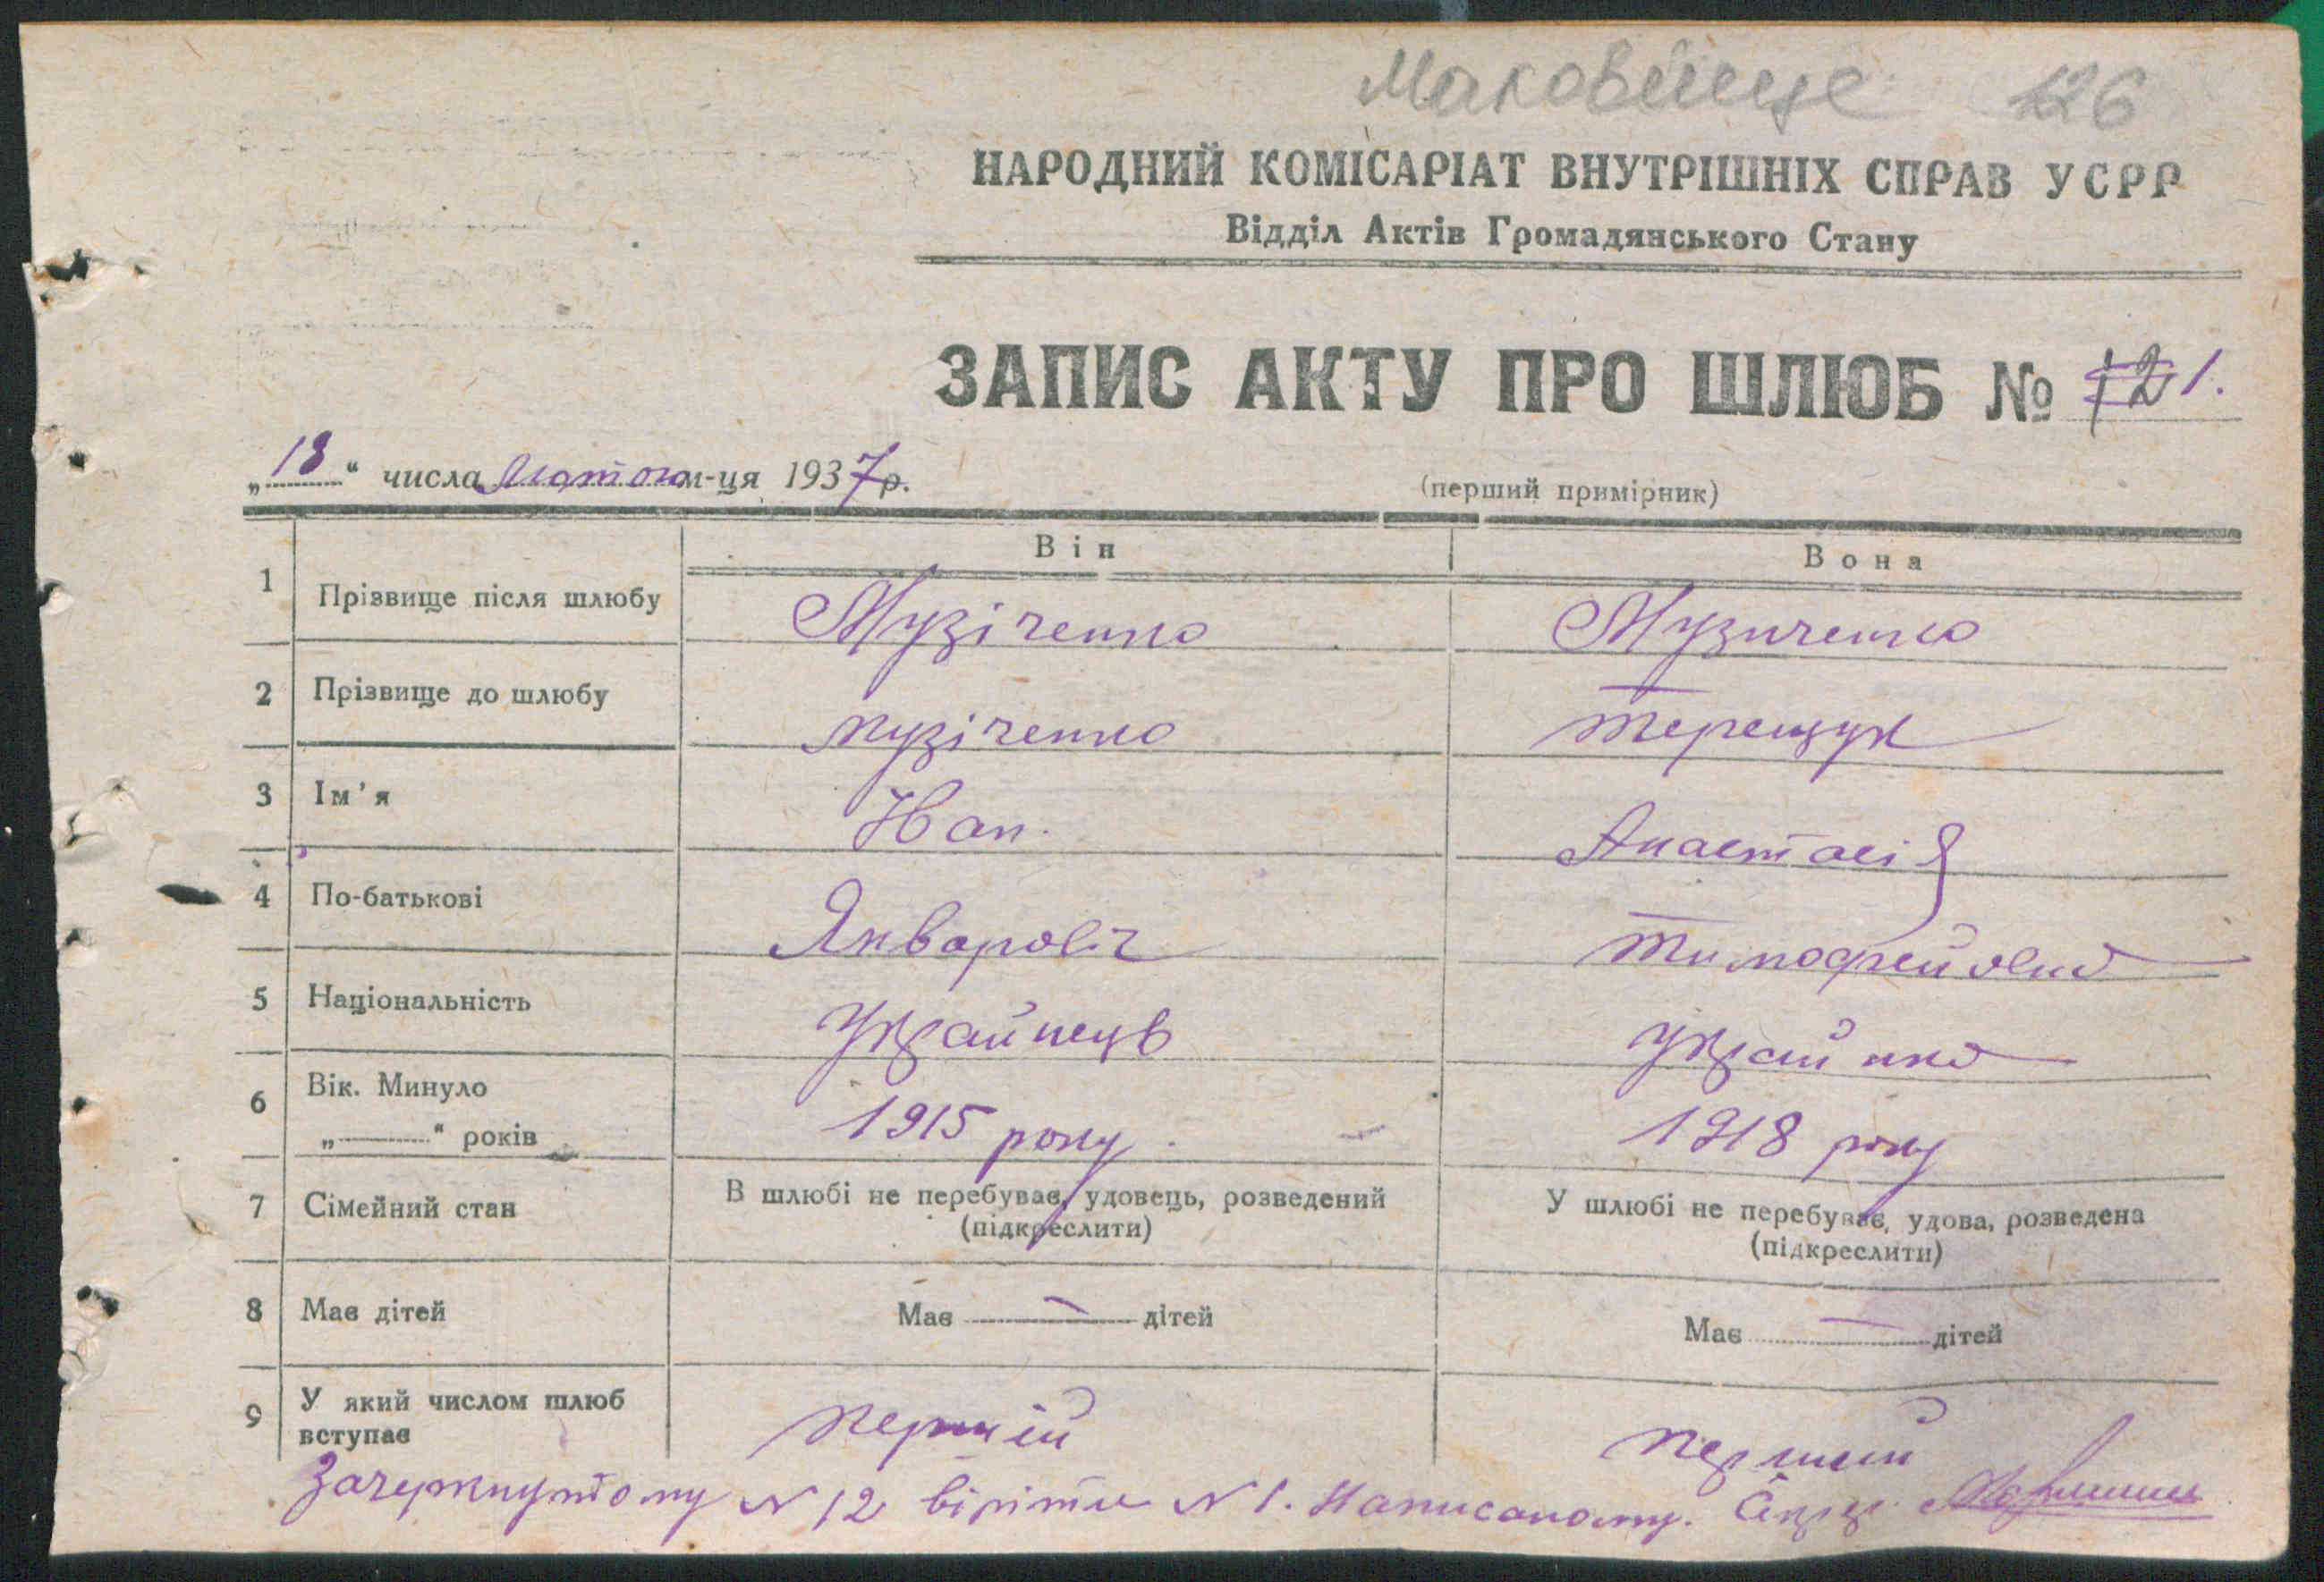 Маковище 126
НАРОДНИЙ КОМІСАРІАТ ВНУТРІШНІХ СПРАВ УСРР
Відділ Актів Громадянського Стану
ЗАПИС АКТУ ПРО ШЛЮБ № 12 1.
„18“ числа Лютого м-ця 1937 р.
(перший примірник)
Він Вона
1 Прізвище після шлюбу Музіченко Музиченко
2 Прізвище до шлюбу Музіченко Терещук
3 Ім'я Іван Анастасія
4 По-батькові Тимофейовна
5 Національність Украйнець Украйнка
6 Вік. Минуло
„——“ років 1915 року 1918 року
7 Сімейний стан В шлюбі не перебуває, удовець, розведений У шлюбі не перебуває, удова, розведена
(підкреслити) (підкреслити)
8 Має дітей Має — дітей Має — дітей
9 У який числом шлюб
вступає Перший Перший
Зачеркнутому № 12 віріти № 1. Написаному.